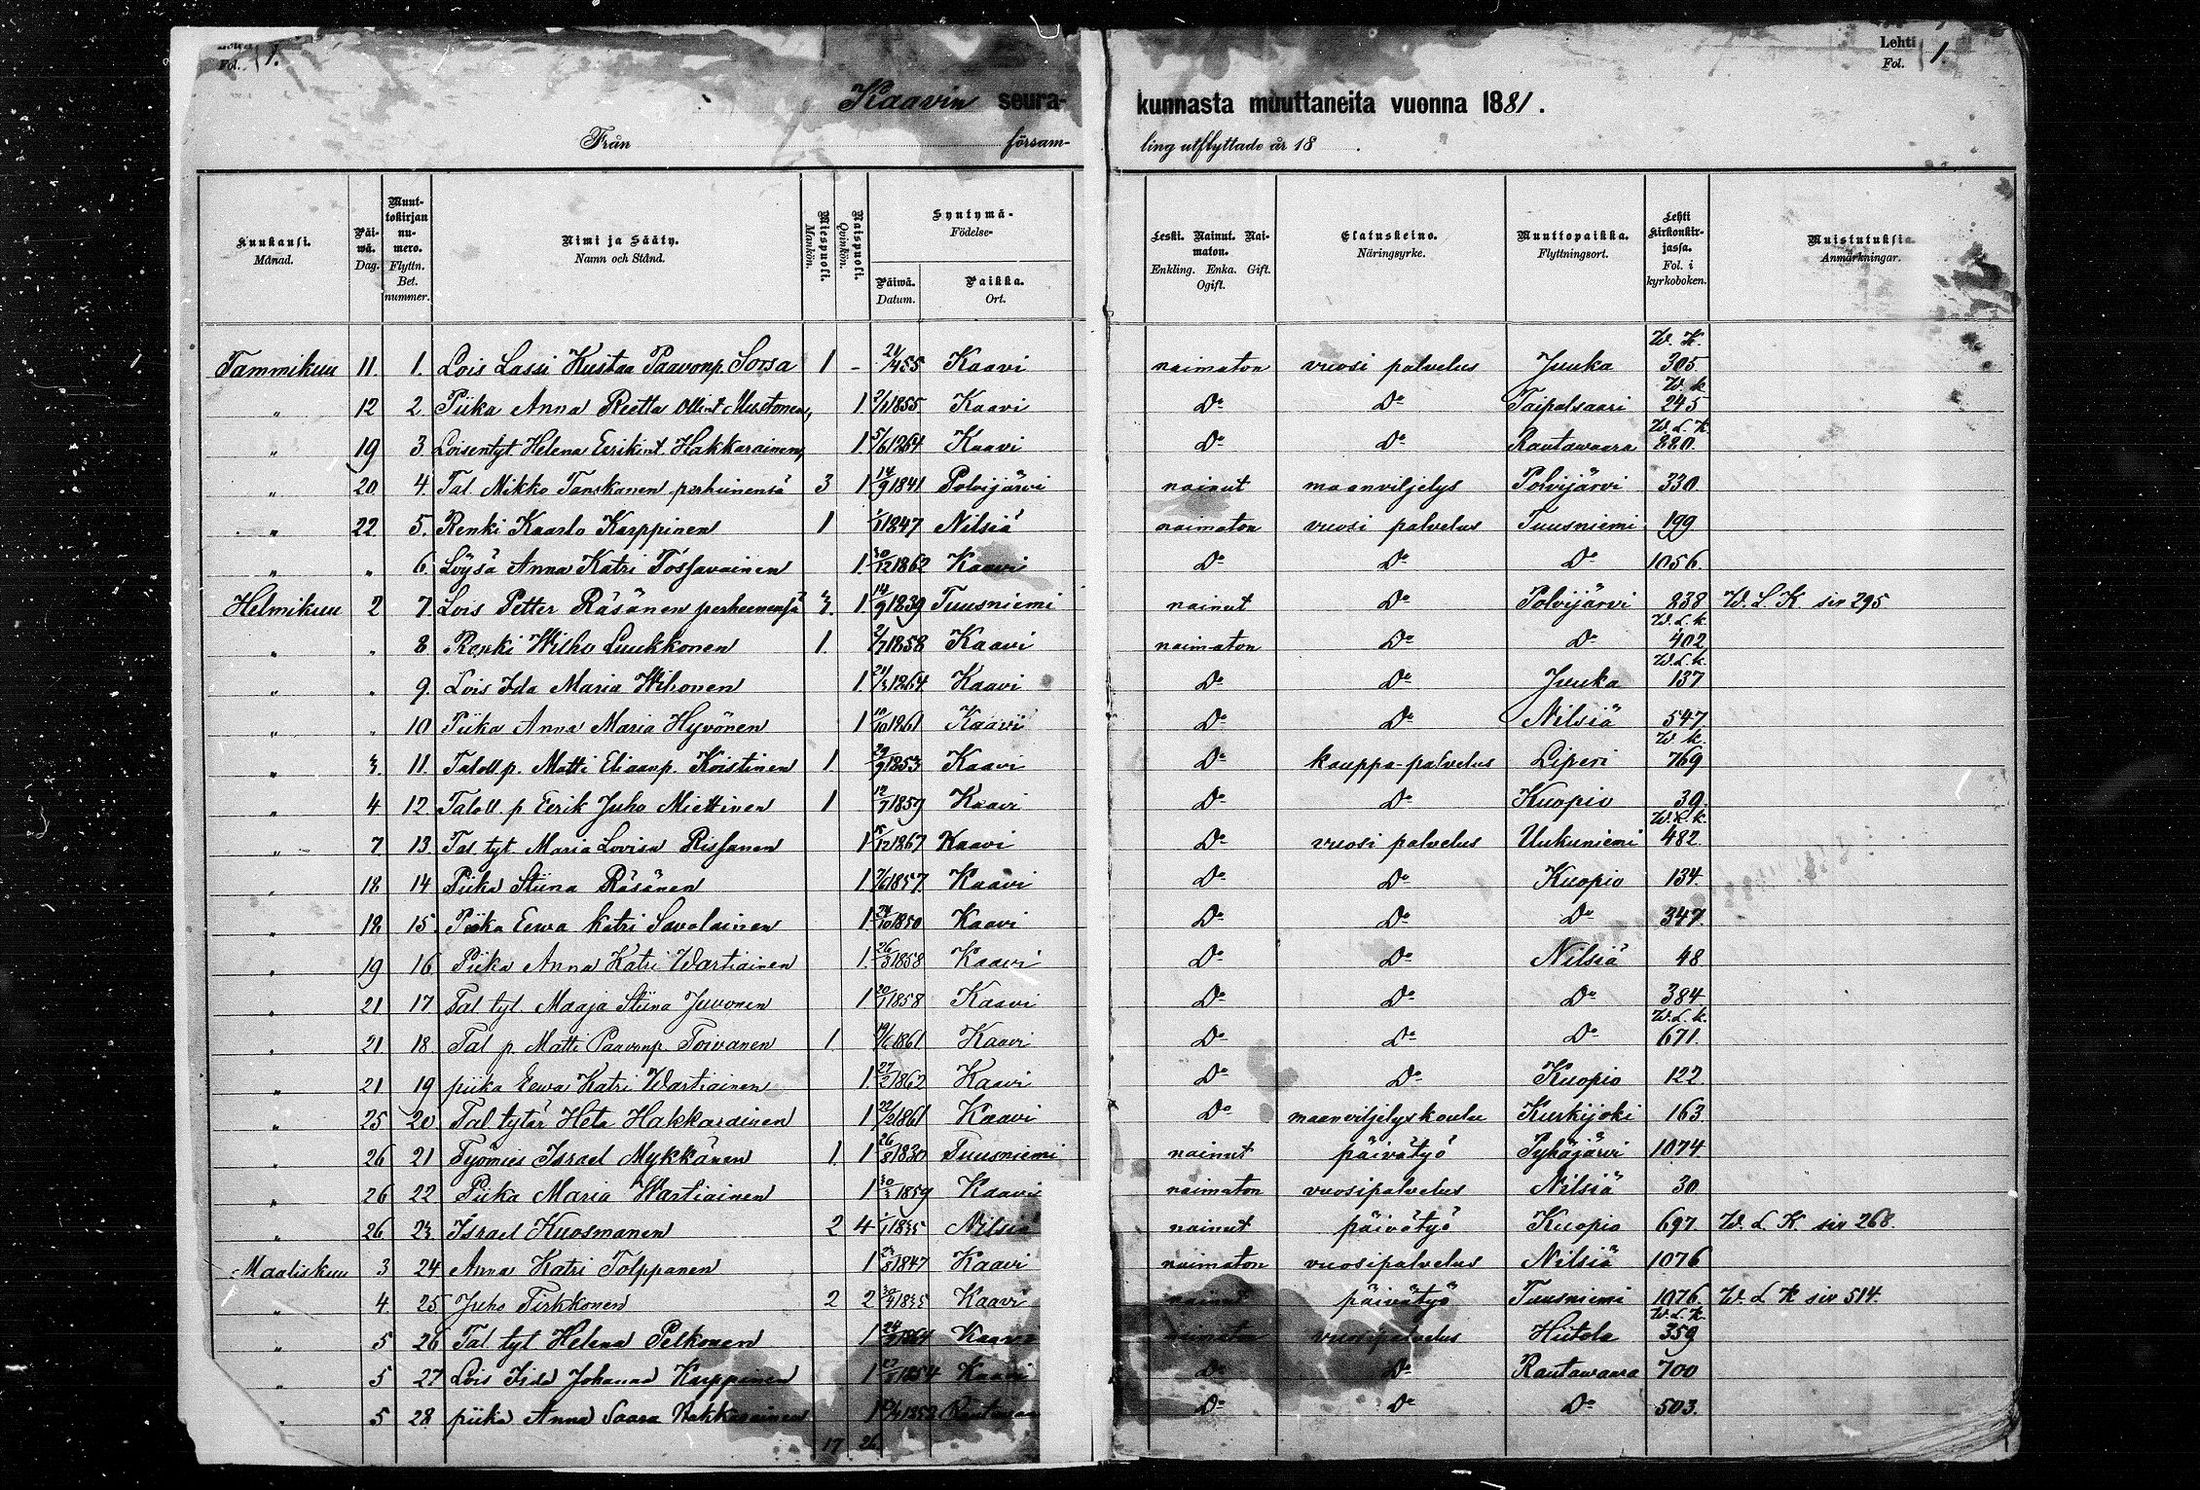 Fol. 1.
Lehti
Fol. 1.
Kaavin seurakunnasta muuttaneita vuonna 1881.
Från församling utflyttade år 18 .
Kuukausi. Månad.
Päiwä. Dag.
Muuttokirjan numero. Flyttn. Bet. nummer.
Nimi ja Sääty. Namn och Stånd.
Miespuoli. Mankön.
Naispuoli. Qvinkön.
Syntymä- Födelse-
Päiwä. Datum.
Paikka. Ort.
Leski. Nainut. Naimaton. Enkling. Enka. Gift. Ogift.
Elatuskeino. Näringsyrke.
Muuttopaikka. Flyttningsort.
Lehti kirkonkirjassa. Fol. i kyrkoboken.
Muistutuksia. Anmärkningar.
Tammikuu 11. 1. Lois Lassi Kustaa Paavonp. Sorsa 1 - Kaavi naimaton vuosi palvelus Juuka W. K. 305
" 12 2. Piika Anna Reetta Ollint. Mustonen 1 1855 Kaavi Do Do Taipalsaari W. k. 245
" 19 3 Loisentyt Helena Eerikint Hakkarainen 1 5/6 1864 Kaavi Do Do Rautawaara W. L. K. 220.
" 20 4. Tal. Mikko Tanskanen perheinensä 3 1 14/9 1841 Polvijärvi nainut maanviljelys Polvijärvi 330
" 22 5. Renki Kaarlo Karppinen 1 1847 Nilsiä naimaton vuosi palvelus Tuusniemi 199
" " 6 Löysä Anna Katri Tossavainen 1. 30/12 1862 Kaavi Do Do Do 1056.
Helmikuu 2 7. Lois Petter Räsänen perheinensä 3. 1 14/9 1839 Tuusniemi nainut Do Polvijärvi 838 W. L. K siv 295
" " 8 Renki Wilho Luukkonen 1. 2/7 1858 Kaavi naimaton Do Do W. L. k. 402
" " 9. Lois Ida Maria Hilronen 1. 1864 Kaavi Do Do Juuka W. L. k. 137
" " 10 Piika Anna Maria Hyvönen 1 10/10 1861 Kaavi Do Do Nilsiä 547
" 3. 11. Taloll p. Matti Eliaanp. Koistinen 1. 29/9 1853 Kaavi Do kauppa-palvelus Liperi W. k. 769
" 4 12. Taloll. p Eerik Juho Miettinen 1 12/7 1859 Kaavi Do Do Kuopio 39.
" 7. 13. Tal. tyt Maria Lovisa Rissanen 1 15/12 1867 Kaavi Do vuosi palvelus Uukuniemi W. L. k. 482.
" 18 14 Piika Stiina Räsänen 1 1857 Kaavi Do Do Kuopio 134.
" 18 15. Piika Eewa Katri Savolainen 1 24/10 1850 Kaavi Do Do Do 347.
" 19 16 Piika Anna Katri Wartiainen 1. 26/3 1858 Kaavi Do Do Nilsiä 48
" 21 17 Tal tyt. Maaja Stiina Juvonen 1 20/1 1858 Kaavi Do Do Do 384
" 21 18. Tal p. Matti Paavonp. Toivanen 1. 1861 Kaavi Do Do Do W. L. k. 671.
" 21 19 piika Eewa Katri Wartiainen 1 27/2 1862 Kaavi Do Do Kuopio 122.
" 25 20 Tal tytär Heta Hakkarainen 1 22/2 1861 Kaavi Do maanviljelyskoulu Kurkijoki 163
" 26 21 Työmies Israel Mykkänen 1. 1 26/8 1830 Tuusniemi nainut päivätyö Pyhäjärvi 1074.
" 26 22 Piika Maria Wartiainen 1 30/3 1859 Kaavi naimaton vuosipalvelus Nilsiä 30
" 26 23 Israel Kuosmanen 2 4 1/1 1835 Nilsiä nainut päivätyö Kuopio 697. W. L. K siv 268.
Maaliskuu 3 24 Anna Katri Tolppanen 1 1847 Kaavi naimaton vuosipalvelus Nilsiä 1076
" 4. 25 Juho Tirkkonen 2 2 1835 Kaavi nainut päivätyö Tuusniemi 1076. W. L. K siv 514.
" 5 26 Tal tyt Helena Pelkonen 1 1864 Kaavi naimaton vuosipalvelus Hiitola W. L. k. 359
" 5 27 Lois Iida Johanna Karppinen 1 1854 Kaavi Do Do Rautawaara 700
" 5 28 piika Anna Saara Hakkarainen 1 1858 Do Do Do 503.
17 26